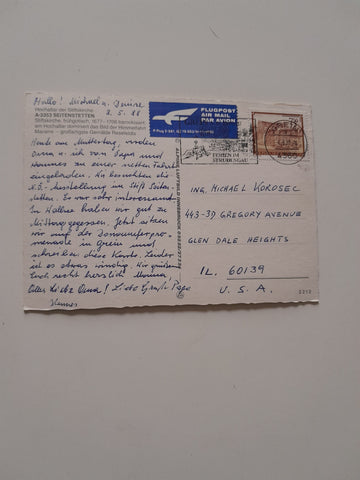 Hallo! Michael u. Denise
8.5.88
Hochaltar der Stiftskirche
A-3353 SEITENSTETTEN
Stiftskirche, frühgotisch, 1677-1706 barockisiert,
am Hochaltar dominiert das Bild der Himmelfahrt
Mariens - großartigste Gemälde Reselfelds
FLUGPOST
AIR MAIL
PAR AVION
Heute am Muttertag, wurden
Oma u. ich von Papa und
Hannes zu einer netten Fahrt
eingeladen. Wir besuchten die
N.Ö. Ausstellung im Stift Seiten-
stetten. Es war sehr interessant.
In haben wir gut zu
Mittag gegessen. Jetzt sitzen
wir auf der Donauuferpro-
menade in Grein und
schreiben diese Karte. Leider
ist es etwas windig. Wir grüßen
Euch recht herzlich Mama,
Alles Liebe Oma! Liebe Grüße Papa
Hannes
FERIEN IM
STRUDENGAU
GREIN
4360
ING. MICHAEL KOKOSEC
443-39 GREGORY AVENUE
GLEN DALE HEIGHTS
IL. 60139
U.S.A.